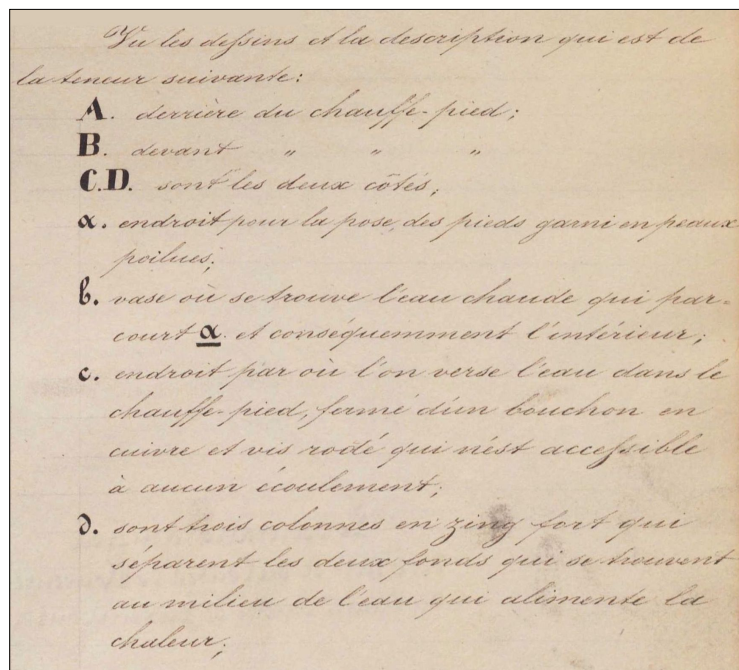 Vu les dessins et la description qui est de
la teneur suivante:
A. derrière du chauffe-pied;
B. devant " " "
C.D. sont les deux côtés;
a. endroit pour la pose des pieds garni en peaux
poilues;
b. vase où se trouve l'eau chaude qui par-
court a. et conséquemment l'intérieur;
c. endroit par où l'on verse l'eau dans le
chauffe-pied, fermé d'un bouchon en
cuivre et vis rodé qui n'est accessible
à aucun écoulement;
d. sont trois colonnes en zing fort qui
séparent les deux fonds qui se trouvent
au milieu de l'eau qui alimente la
chaleur;